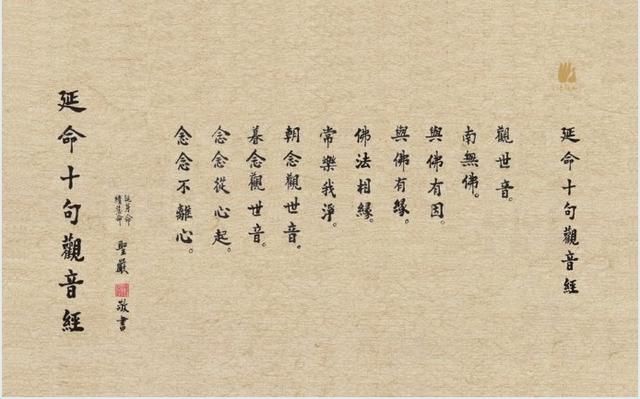 延命十句觀音經
觀世音。
南無佛。
與佛有因。
與佛有緣。
佛法相緣。
常樂我淨。
朝念觀世音。
暮念觀世音。
念念從心起。
念念不離心。
延壽命
續慧命
聖嚴
敬書
延命十句觀音經